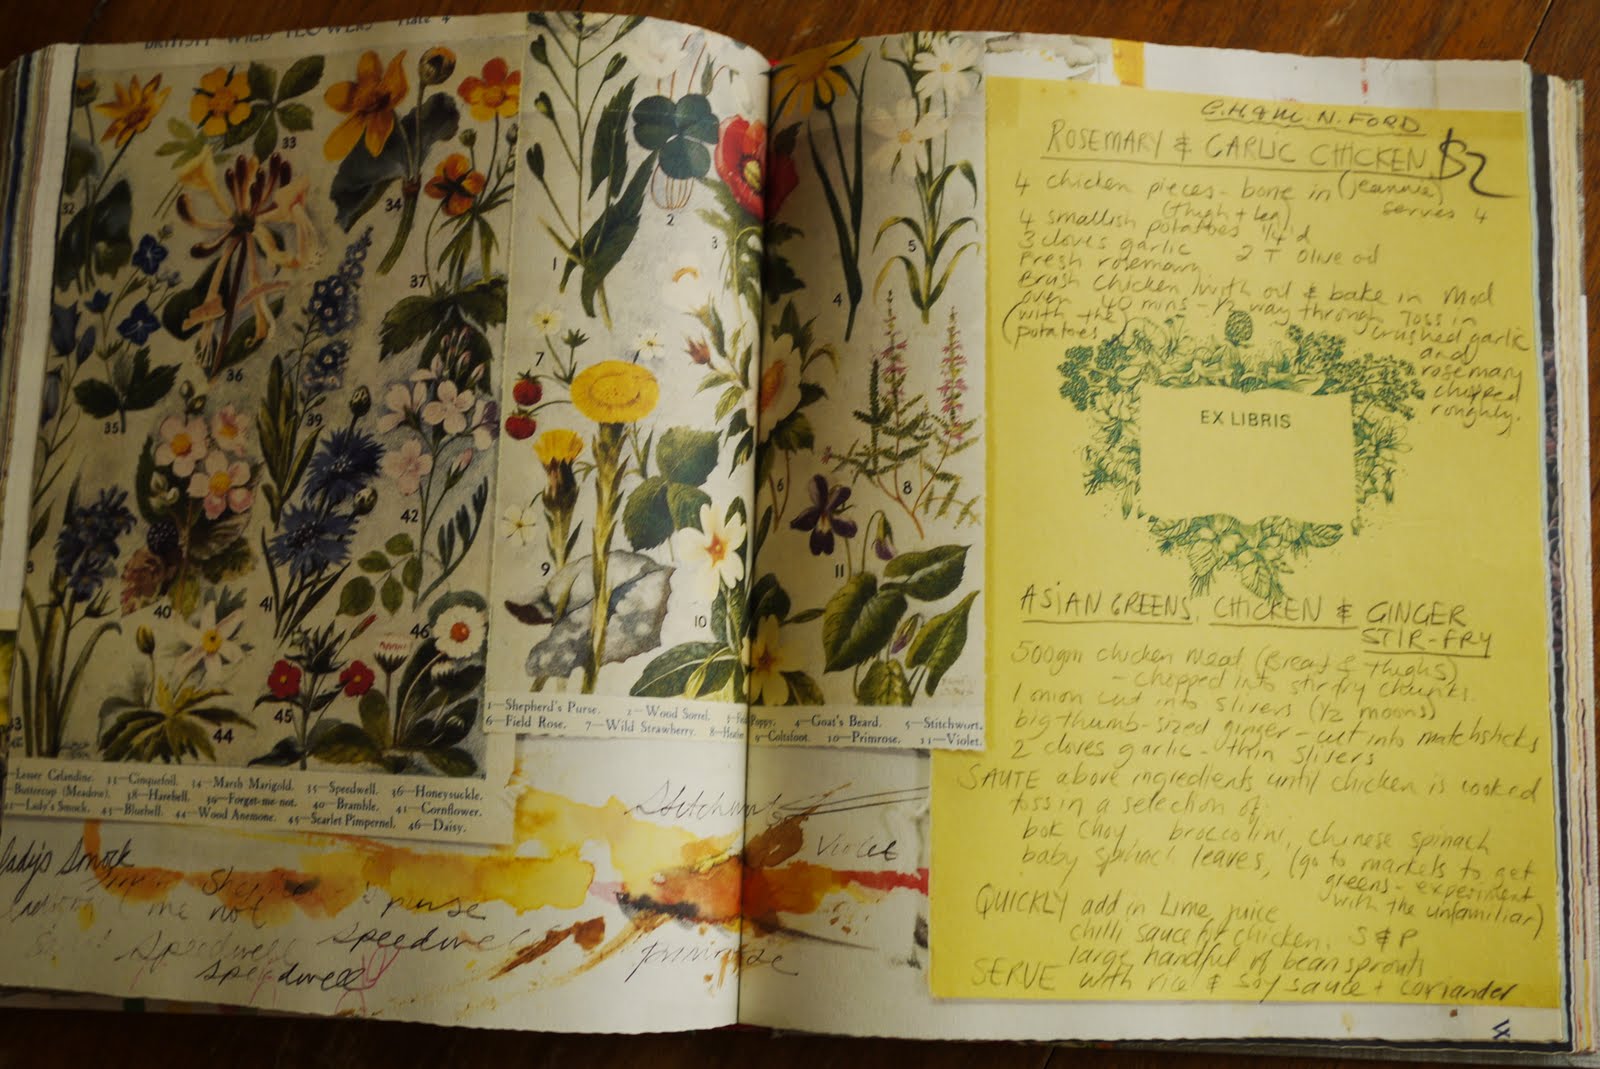 BRITISH WILD FLOWERS Plate 4
32
33
34
35
36
37
39
40
41
42
44
45
46
—Lesser Celandine. 33—Cinquefoil. 34—Marsh Marigold. 35—Speedwell. 36—Honeysuckle.
—Buttercup (Meadow). 38—Harebell. 39—Forget-me-not. 40—Bramble. 41—Cornflower.
42—Lady's Smock. 43—Bluebell. 44—Wood Anemone. 45—Scarlet Pimpernel. 46—Daisy.
1
2
3
4
5
6
7
8
9
10
11
1—Shepherd's Purse. 2—Wood Sorrel. 3— Poppy. 4—Goat's Beard. 5—Stitchwort.
6—Field Rose. 7—Wild Strawberry. 8— 9—Coltsfoot. 10—Primrose. 11—Violet.
Stitchwort
Violet
Lady's Smock
me not
's purse
Speedwell speedwell
speedwell
primrose
N. FORD
ROSEMARY & GARLIC CHICKEN $2
4 chicken pieces - bone in (jeannie)
(thigh + leg) serves 4
4 smallish potatoes 1/4'd
3 cloves garlic 2 T Olive oil
Fresh rosemary
Brush chicken with oil & bake in mod
oven 40 mins - 1/2 way through toss in
(with the potatoes) crushed garlic
and
rosemary
chopped
roughly.
EX LIBRIS
ASIAN GREENS, CHICKEN & GINGER
STIR-FRY
500gm chicken meat (Breast & thighs)
- chopped into stirfry chunks.
1 onion cut into slivers (1/2 moons)
big thumb-sized ginger - cut into matchsticks
2 cloves garlic - thin slivers
SAUTE above ingredients until chicken is cooked
toss in a selection of
bok choy broccolini, chinese spinach
baby spinach leaves, (go to markets to get
greens - experiment
with the unfamiliar)
QUICKLY add in Lime juice
chilli sauce for chicken. S & P
large handful of beansprouts
SERVE with rice & soy sauce + coriander